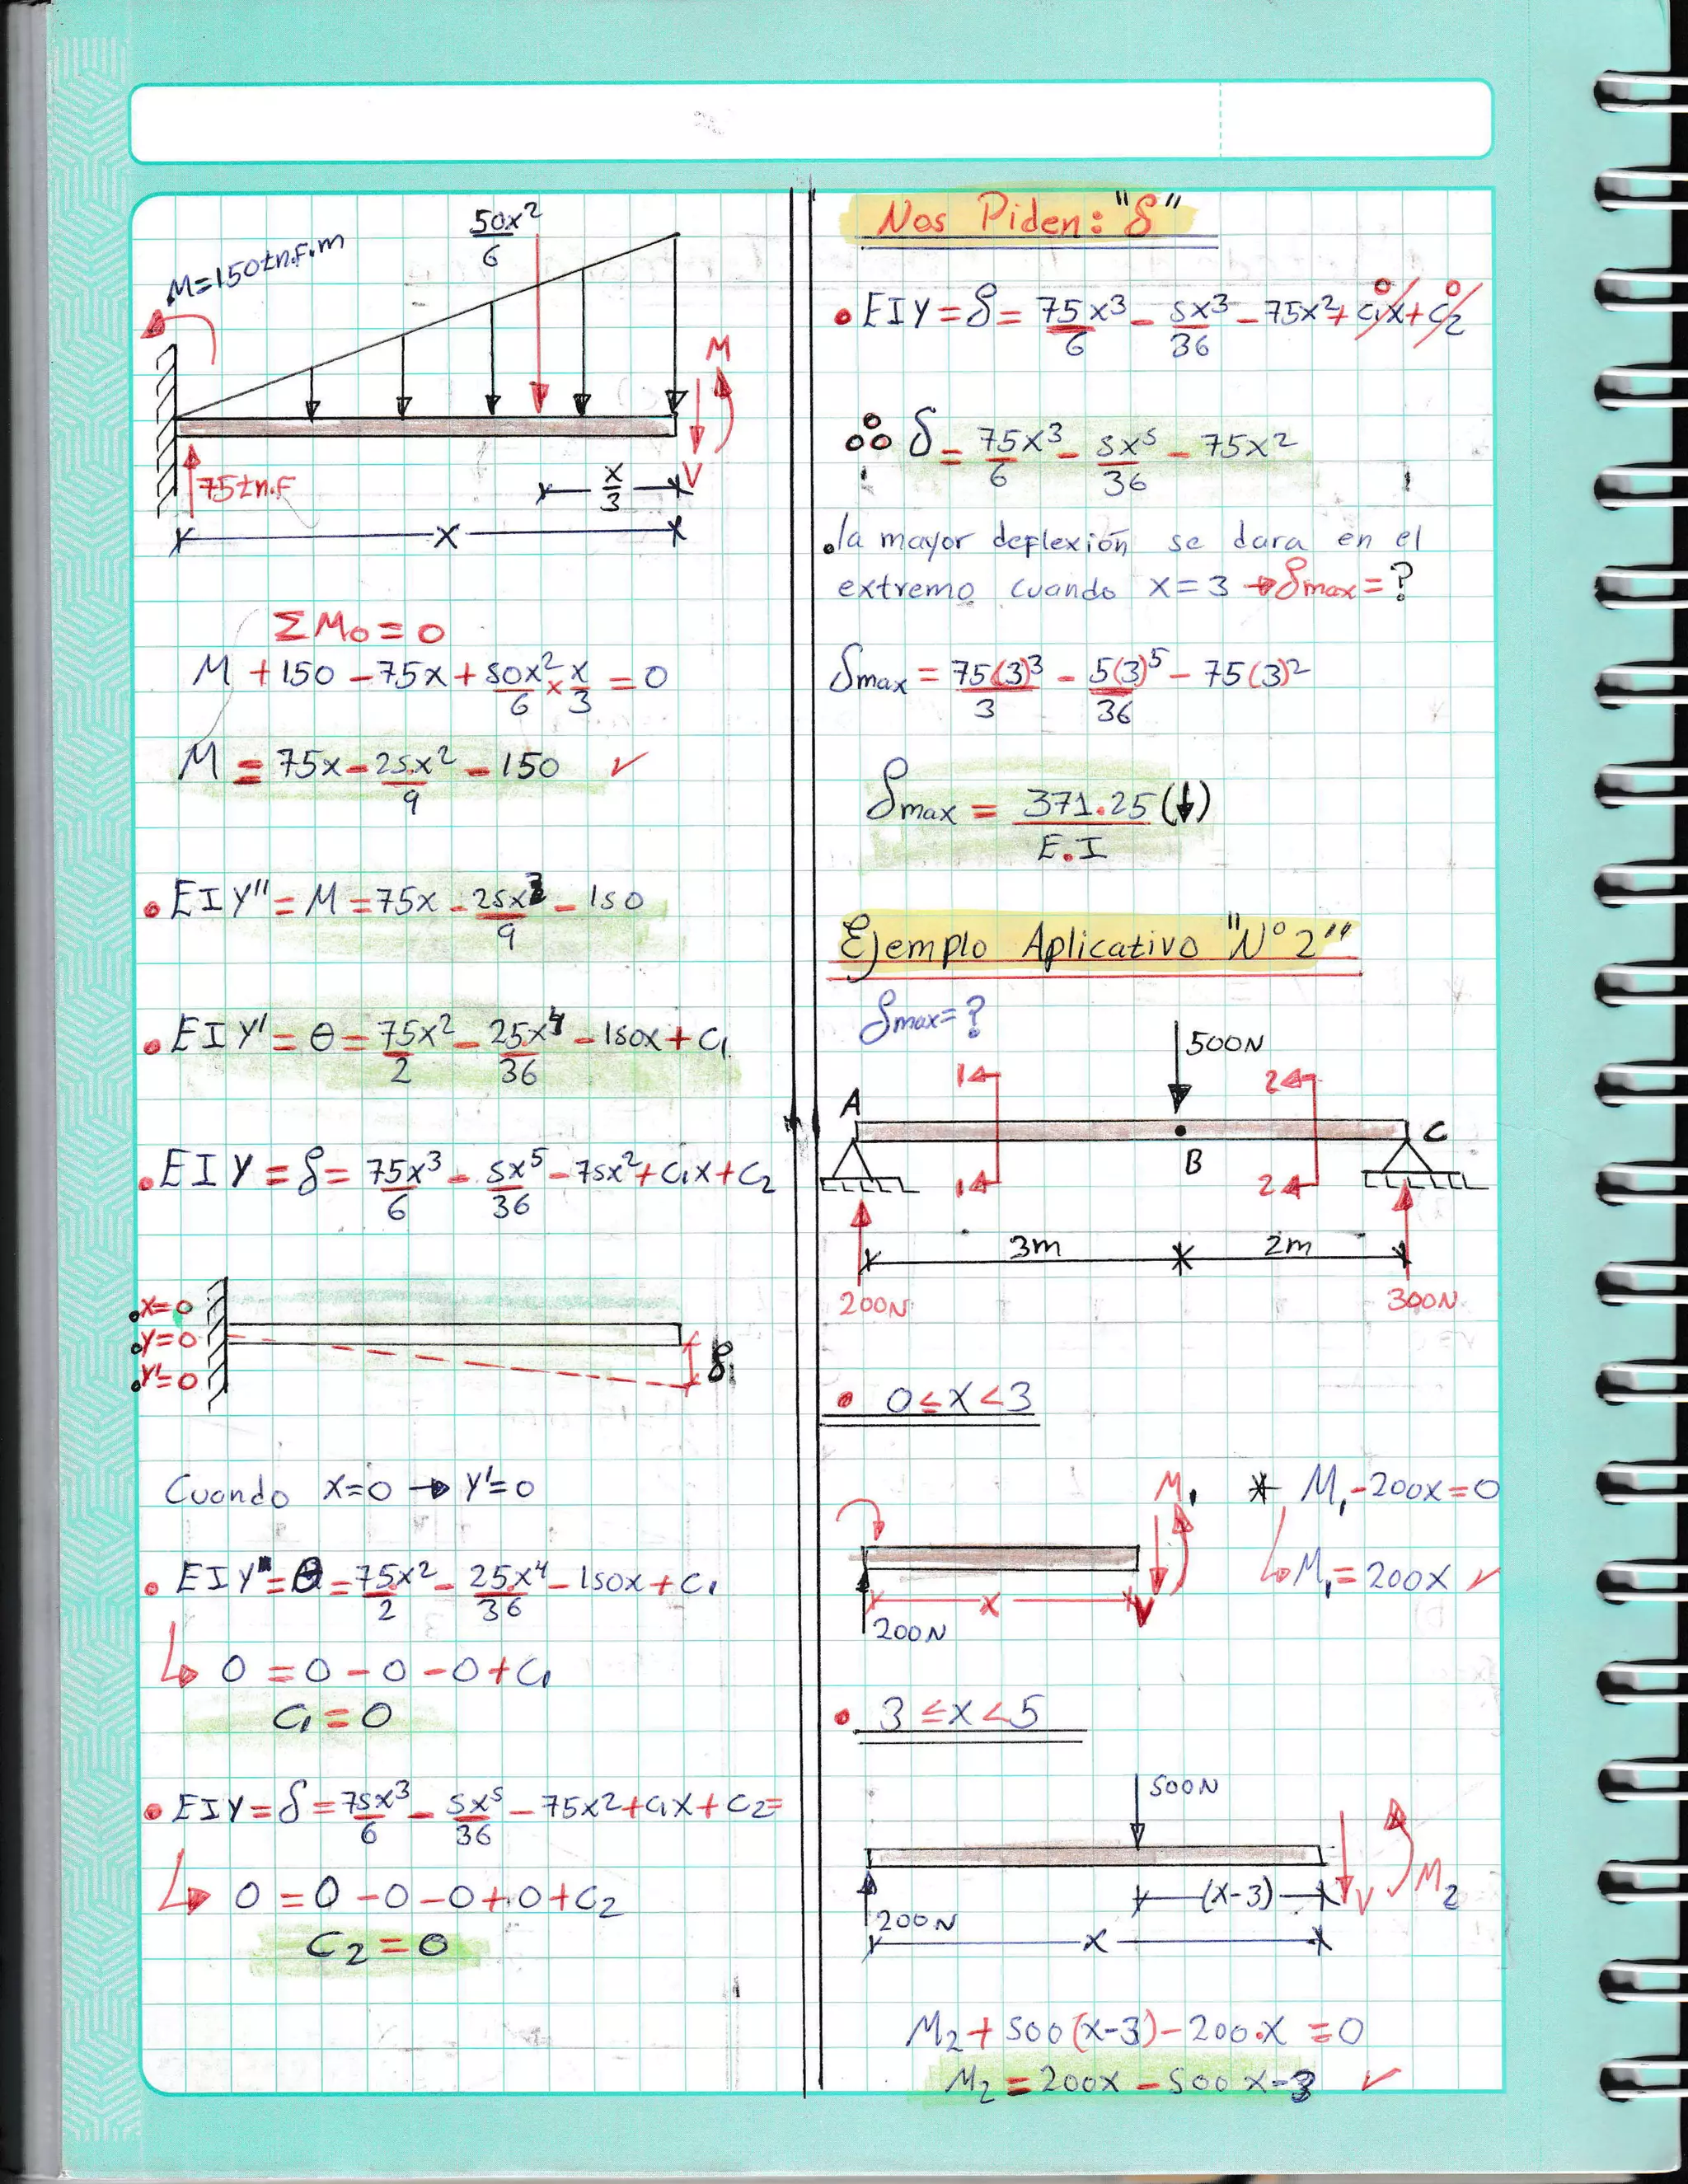 50x²
6
M=150tn.F.m
M
V
75tn.F
x
3
x
ΣMo = 0
M + 150 - 75x + 50x²/6 × x/3 = 0
M = 75x - 25x²/9 - 150 ✓
• EIY'' = M = 75x - 25x³/9 - 150
• EIY' = θ = 75x²/2 - 25x⁴/36 - 150x + C₁
• EIY = δ = 75x³/6 - 5x⁵/36 - 75x² + C₁x + C₂
• x=0
• y=0
• y'=0
δ₁
Cuando x=0 → y'=0
• EIY' = θ = 75x²/2 - 25x⁴/36 - 150x + C₁
↳ 0 = 0 - 0 - 0 + C₁
C₁ = 0
• EIY = δ = 75x³/6 - 5x⁵/36 - 75x² + C₁x + C₂ =
↳ 0 = 0 - 0 - 0 + 0 + C₂
C₂ = 0
Nos Piden: "δ"
• EIY = δ = 75x³/6 - 5x³/36 - 75x² + C₁x + C₂
0 0
∴ δ = 75x³/6 - 5x⁵/36 - 75x²
• la mayor deflexión se dara en el
extremo cuando x = 3 → δmax = ?
δmax = 75(3)³/3 - 5(3)⁵/36 - 75(3)²
δmax = 371.25/E.I (↓)
Ejemplo Aplicativo "N° 2"
δmax = ?
500N
1 2
A C
B
1 2
3m 2m
200N 300N
• 0 ≤ x < 3
M₁ * M₁ - 200x = 0
↳ M₁ = 200x ✓
x V
200N
• 3 ≤ x < 5
500N
(x-3) V M₂
200N
x
M₂ + 500(x-3) - 200.x = 0
M₂ = 200x - 500 x-3 ✓